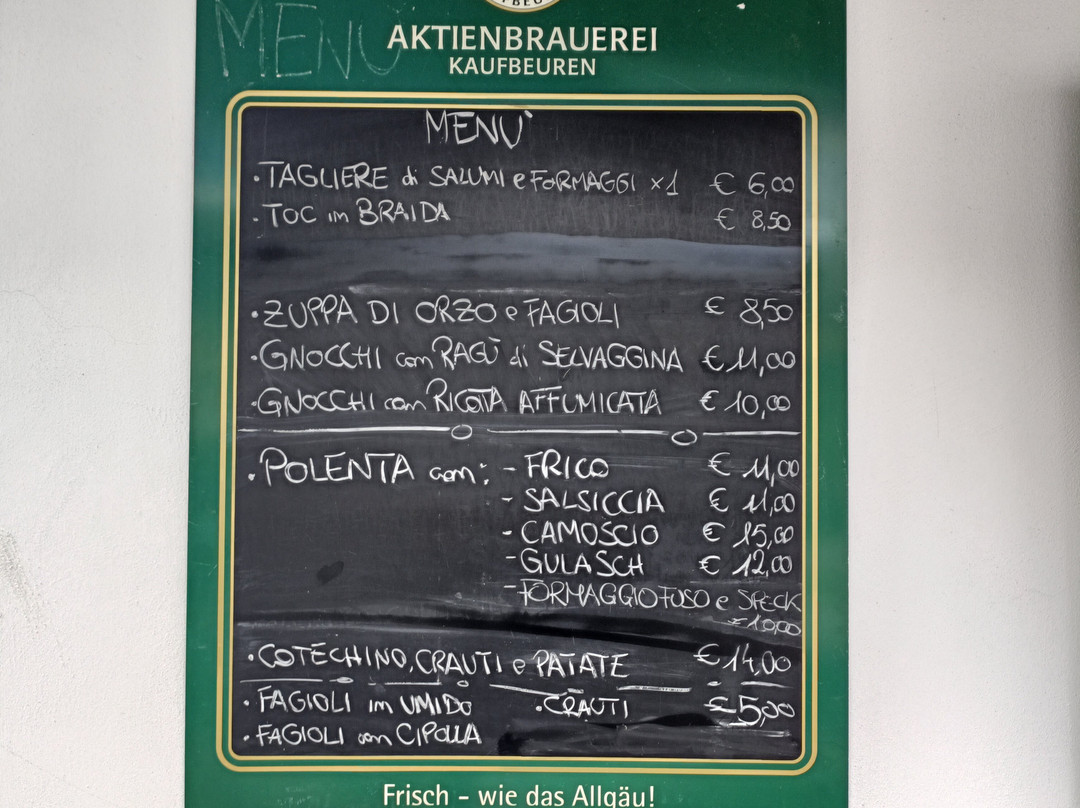 MENU
AKTIENBRAUEREI
KAUFBEUREN
MENU`
• TAGLIERE di SALUMI e FORMAGGI x1 € 6,00
• TOC in BRAIDA € 8,50
• ZUPPA DI ORZO e FAGIOLI € 8,50
• GNOCCHI con RAGÙ di SELVAGGINA € 11,00
• GNOCCHI con RICOTTA AFFUMICATA € 10,00
• POLENTA con: - FRICO € 11,00
- SALSICCIA € 11,00
- CAMOSCIO € 15,00
- GULASCH € 12,00
- FORMAGGIO FUSO e SPECK
€ 10,00
• COTECHINO, CRAUTI e PATATE € 14,00
• FAGIOLI in UMIDO • CRAUTI € 5,00
• FAGIOLI con CIPOLLA
Frisch - wie das Allgäu!